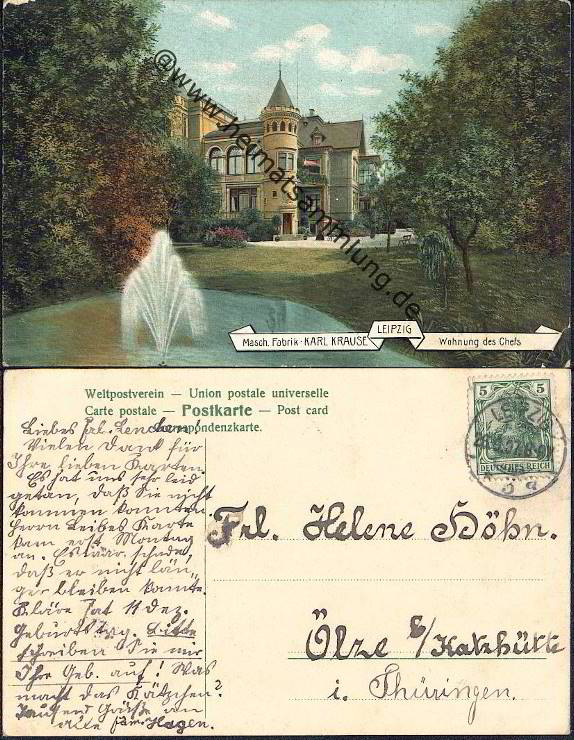 @www.heimatsammlung.de
LEIPZIG
Masch. Fabrik · KARL KRAUSE
Wohnung des Chefs
Weltpostverein — Union postale universelle
Carte postale — Postkarte — Post card
Korrespondenzkarte.
5
DEUTSCHES REICH
LEIPZIG
Liebes Frl. Lenchen!
Vielen Dank für
Ihre lieben Karten.
Es hat uns sehr leid
getan, daß Sie nicht
kommen konnten.
Herrn Leibes Karte
kam erst Montag
an. Es war schade,
daß er nicht län-
ger bleiben konnte.
Kläre hat 11 Dez.
Geburtstag. Bitte
schreiben Sie mir
Ihre Geb. auf! Was
macht das Kätzchen?
Tausend Grüße an
alle Hagen.
Frl. Helene Höhn.
Ölze b/Katzhütte
i. Thüringen.